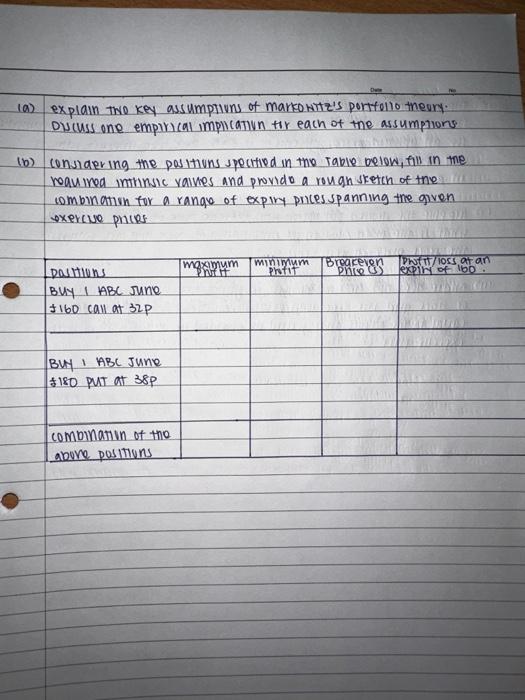 Date No
(a) explain TWO key assumptions of markowitz's portfolio theory.
Discuss one empirical implication for each of the assumptions
(b) considering the positions specified in the Table below, fill in the
required intrinsic values and provide a rough sketch of the
combination for a range of expiry prices spanning the given
exercise prices
positions maximum profit minimum profit Breakeven price(s) Profit/loss at an expiry of 160.
BUY 1 ABC June
$160 call at 32p
BUY 1 ABC June
$180 PUT at 38p
combination of the
above positions